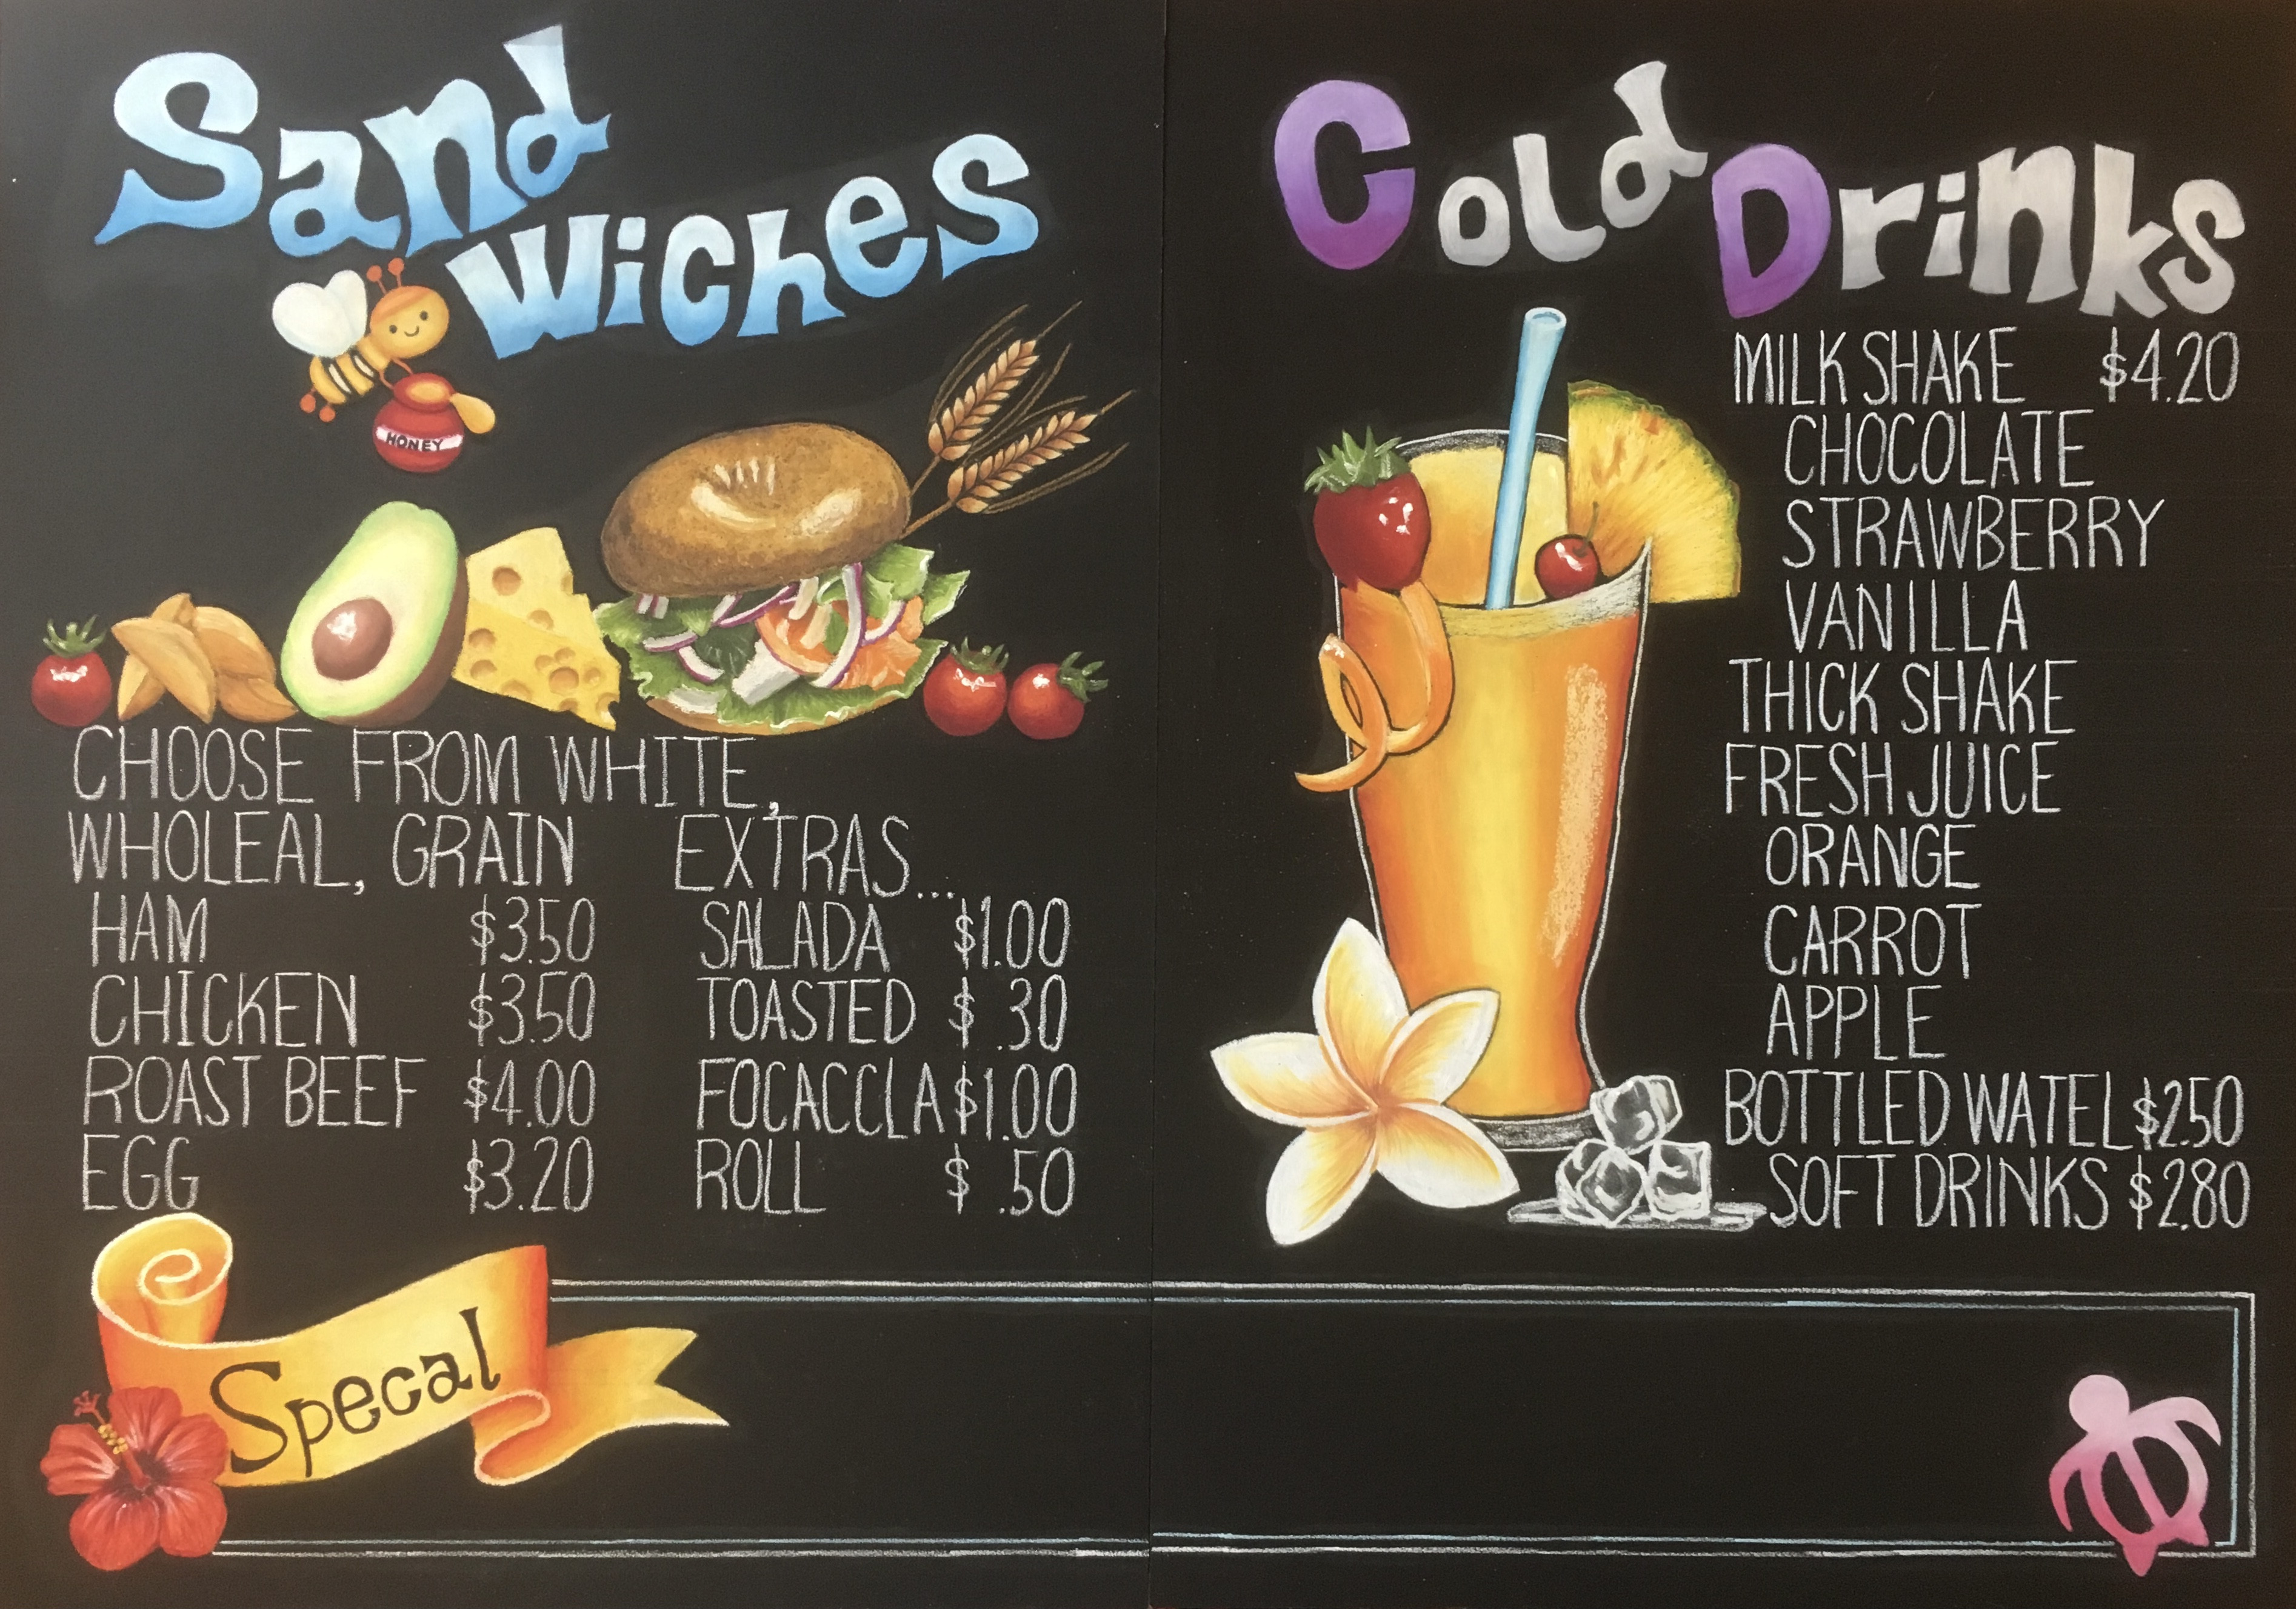 Sand
Wiches
HONEY
CHOOSE FROM WHITE,
WHOLEAL, GRAIN
HAM $3.50
CHICKEN $3.50
ROAST BEEF $4.00
EGG $3.20
EXTRAS...
SALADA $1.00
TOASTED $ .30
FOCACCLA $1.00
ROLL $ .50
Specal
Cold
Drinks
MILK SHAKE $4.20
CHOCOLATE
STRAWBERRY
VANILLA
THICK SHAKE
FRESH JUICE
ORANGE
CARROT
APPLE
BOTTLED WATEL $2.50
SOFT DRINKS $2.80